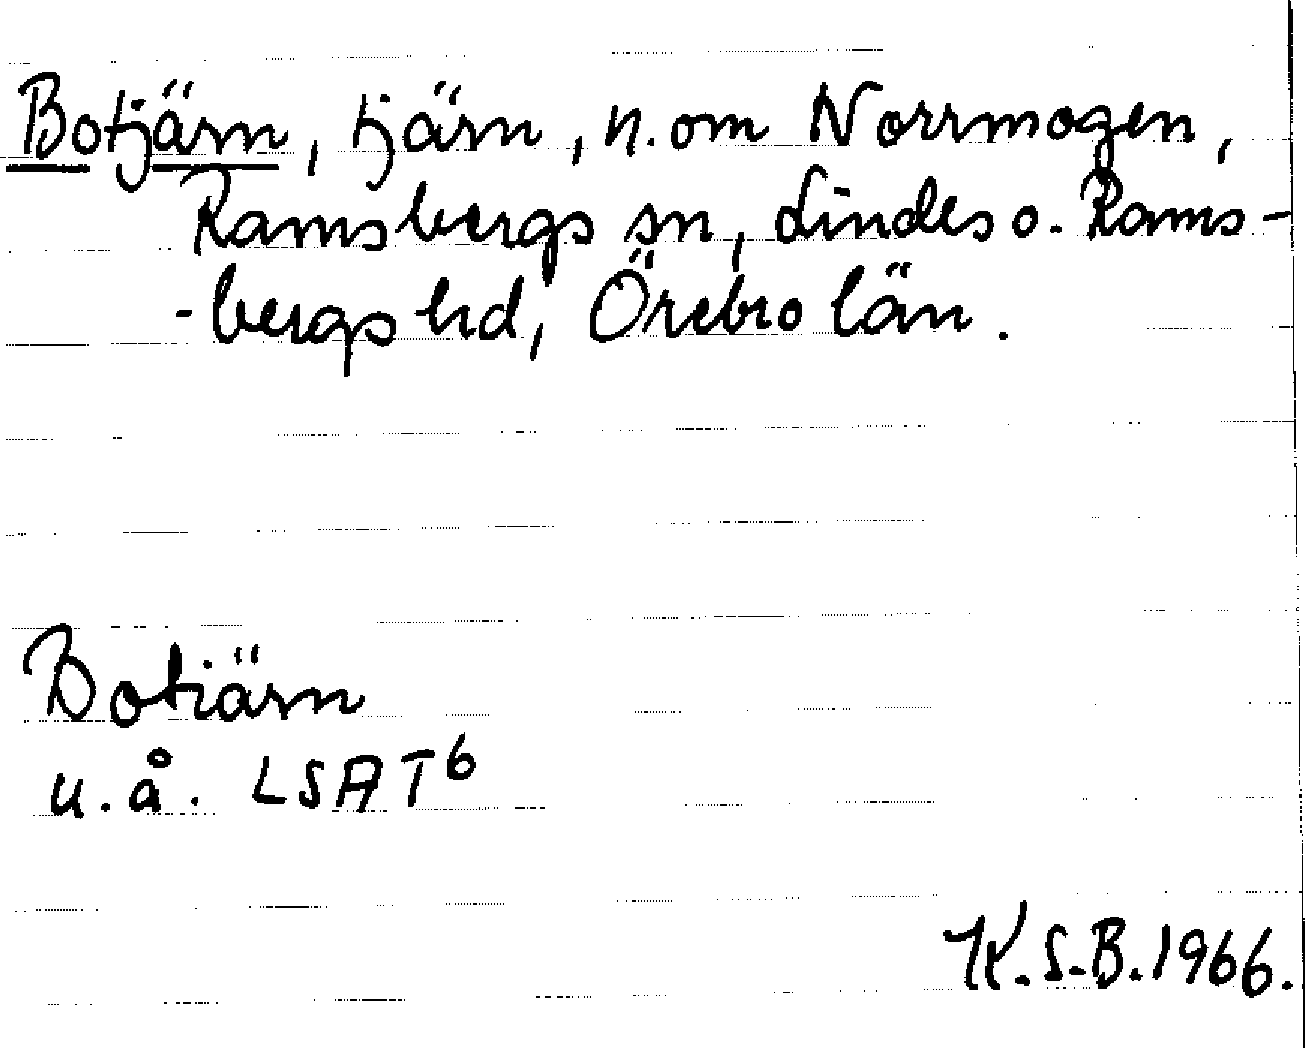 Botjärn, tjärn, n. om Norrmogen,
Ramsbergs sn, Lindes o. Rams-
-bergs hd, Örebro län.
Botiärn
u.å. LSA T6
K.S-B.1966.